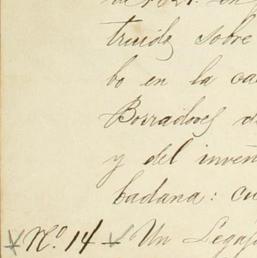 de 1821. en
truido sobre
bo en la ca
Borradores d
y del inven
badana: cu
Nº 14 Un Legajo